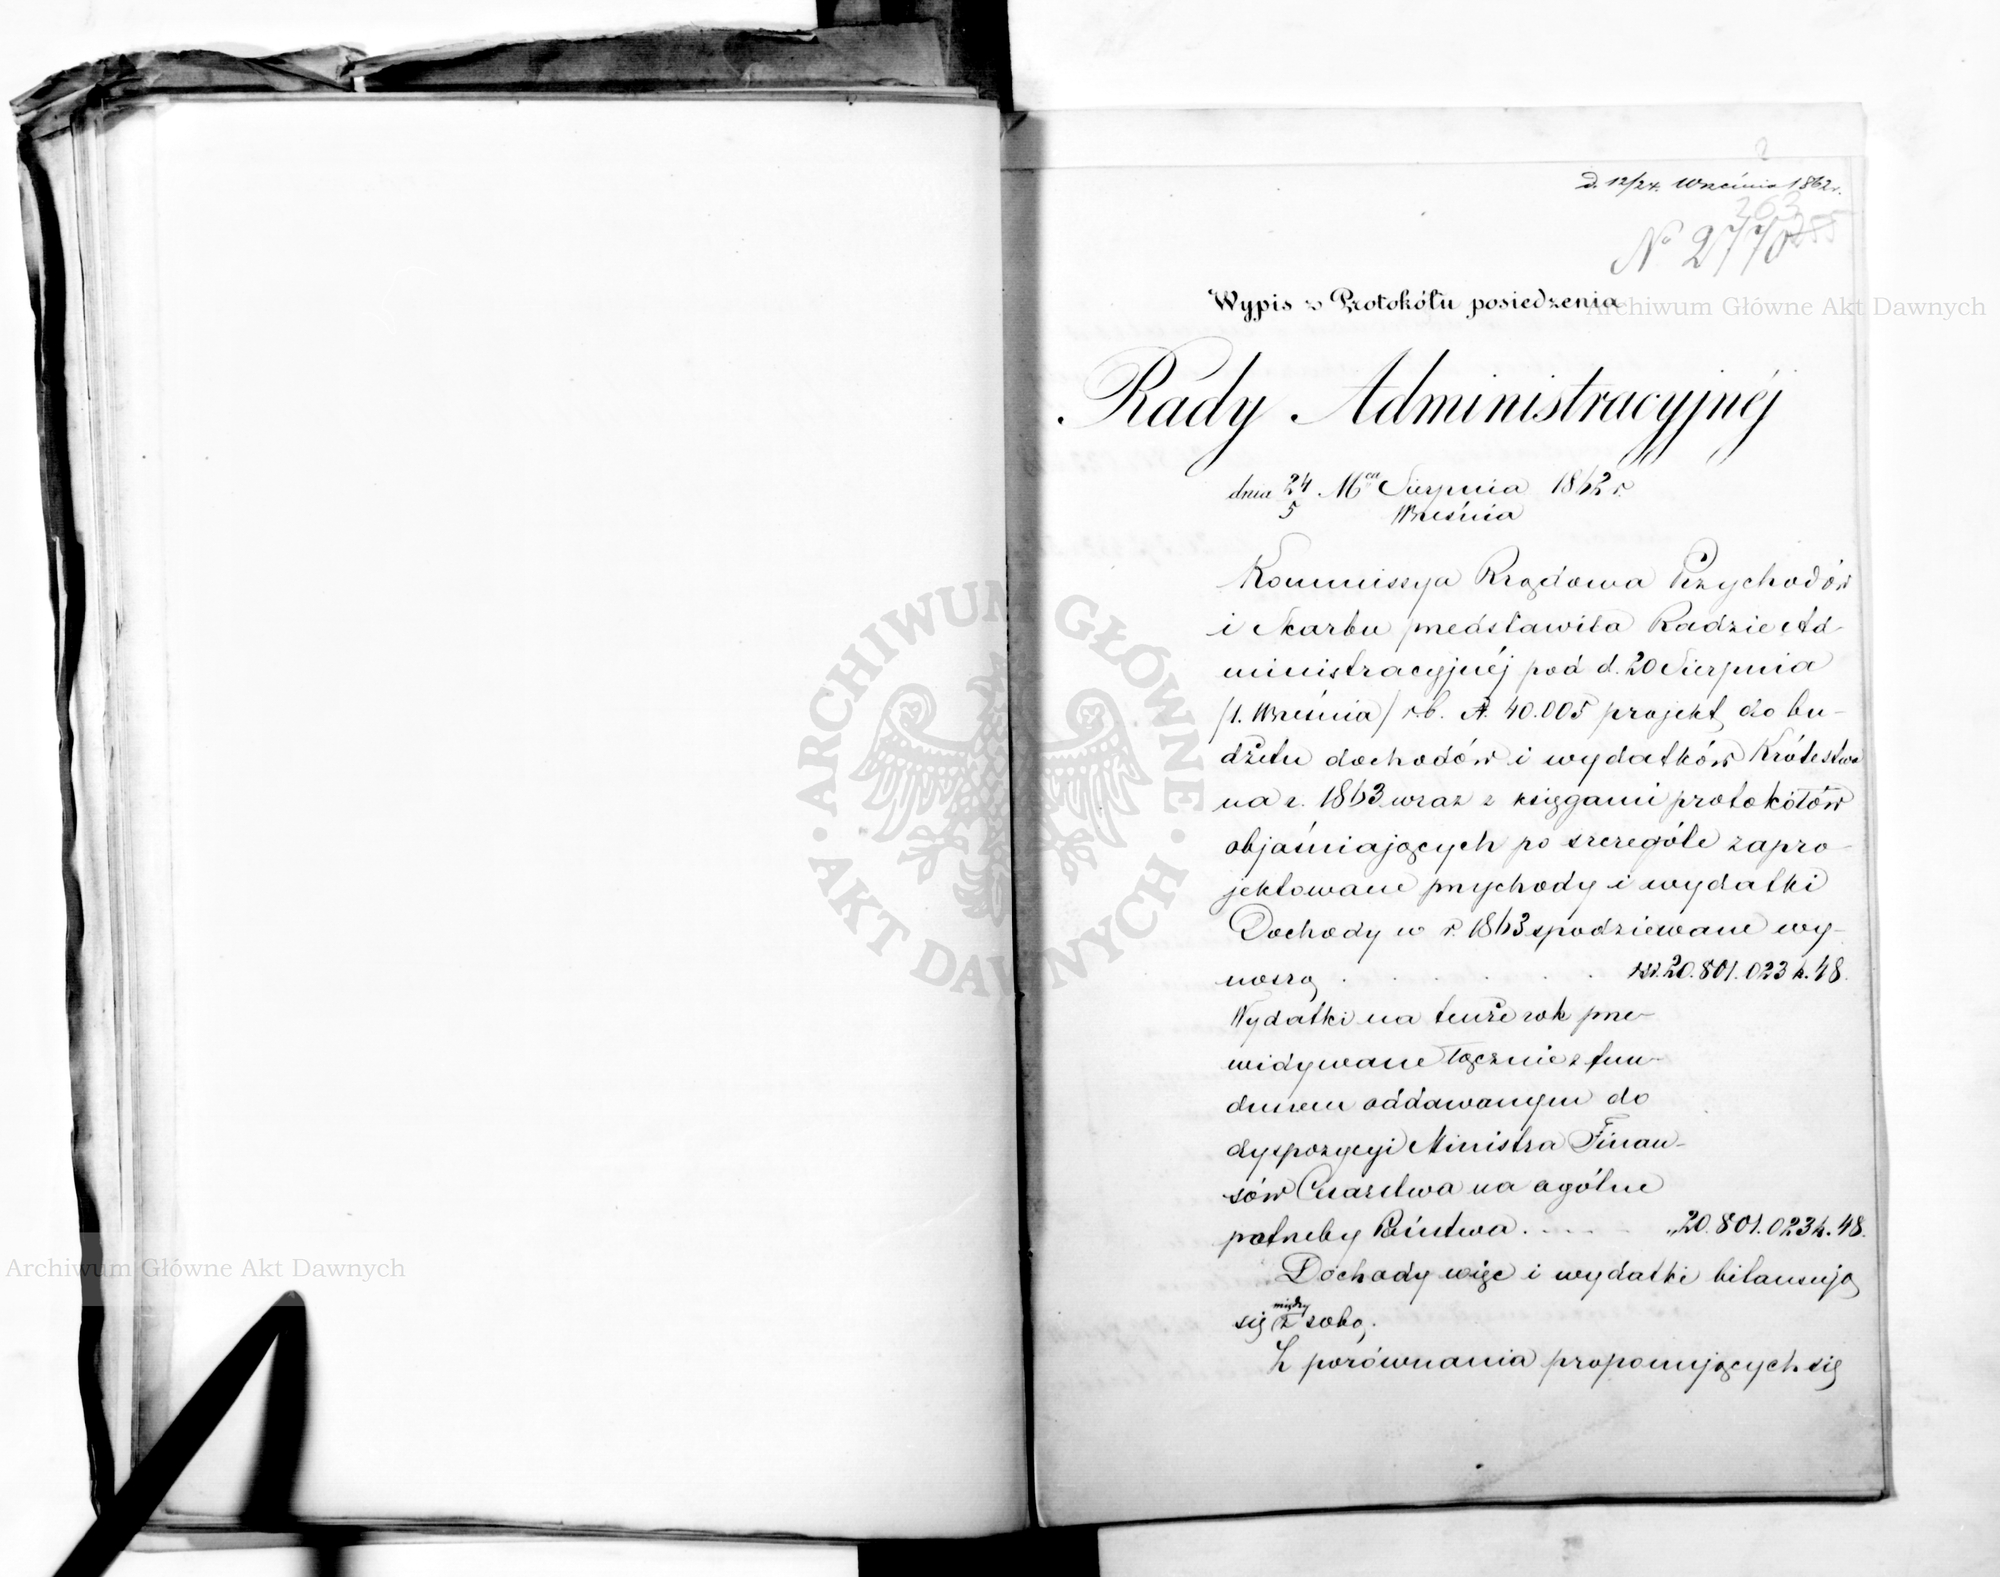 d. 12/24. Września 1862 r.
263
255
№ 2770
Wypis z Protokółu posiedzenia
Archiwum Główne Akt Dawnych
Rady Administracyjnéj
dnia 24 Mca Sierpnia 1862 r.
5 Września
Kommissya Rządowa Przychodów
i Skarbu przedstawiła Radzie Ad-
ministracyjnéj pod d. 20 Sierpnia
/1. Września/ r.b. N. 40.005 projekt do bu-
dżetu dochodów i wydatków Królestwa
na r. 1863 wraz z księgami protokółów
objaśniających po szczególe zapro-
jektowane przychody i wydatki
Dochody w r. 1863 spodziewane wy-
noszą . . . . . rsr. 20.801.023 k. 48.
Wydatki na tenże rok prze-
widywane łącznie z fun-
duszem oddawanym do
dyspozycyi Ministra Finan-
sów Cesarstwa na ogólne
potrzeby Państwa. . . . . „20.801.023 k. 48.
Dochody więc i wydatki bilansują
się między z sobą.
Z porównania proponujących się
ARCHIWUM GŁÓWNE · AKT DAWNYCH ·
Archiwum Główne Akt Dawnych